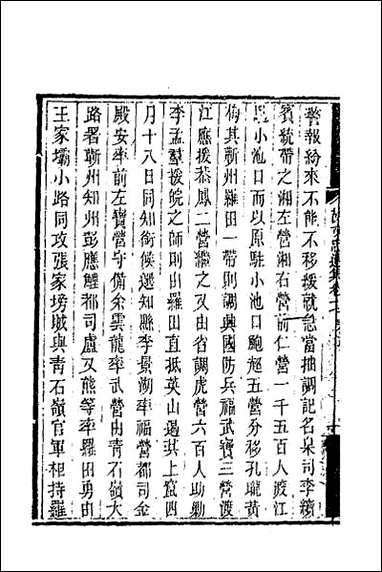 警報紛來不能不移援就急當抽調記名臬司李續
賓統帶之湘左營湘右營前仁營一千五百人渡江
小池口而以原駐小池口鮑超五營分移孔壠黃
梅其蘄州羅田一帶則調興國防兵福武寶三營渡
江應援恭鳳二營繼之又由省調虎營六百人助勦
李孟羣援皖之師則由羅田直抵英山遏其上竄四
月十八日同知銜候選知縣李景湖率福營都司金
殿安率前左寶營守備余雲龍率武營由青石嶺大
路署蘄州知州彭應鯉都司盧又熊等率羅田勇由
王家壩小路同攻張家塝賊與青石嶺官軍相持羅